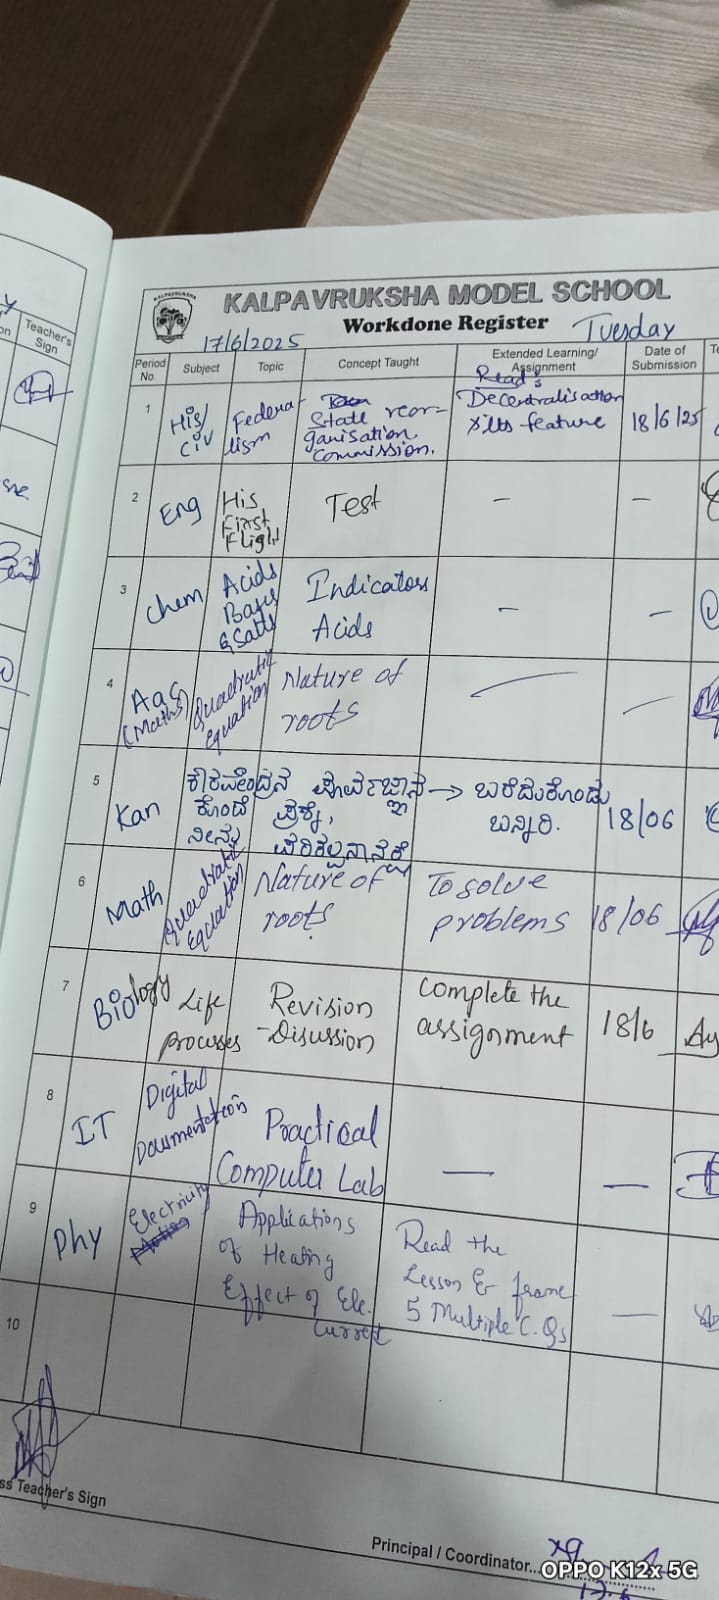 KALPAVRUKSHA MODEL SCHOOL
Workdone Register
17/6/2025
Tuesday
Teacher's
Sign
Period No.
Subject
Topic
Concept Taught
Extended Learning/ Assignment
Date of Submission
1
His/ Civ
Federa- lism
State reor- ganisation Commission.
Read's Decentralisation & its feature
18/6/25
2
Eng
His First Flight
Test
—
—
3
Chem
Acids Bases & Salts
Indicators Acids
—
—
4
(Maths)
Quadratic Equation
Nature of roots
—
—
5
Kan
ಕೌರವೇಂದ್ರನ ಕೊಂದೆ ನೀನು
ಪೂರ್ವಜ್ಞಾನ ಪ್ರಶ್ನೆ,
→ ಬರೆದುಕೊಂಡು ಬನ್ನಿರಿ.
18/06
6
Math
Quadratic Equation
Nature of roots
To solve problems
18/06
7
Biology
Life processes
Revision -Disussion
Complete the assignment
18/6
8
IT
Digital Documentation
Practical Computer Lab
—
—
9
Phy
Electricity
Applications of Heating Effect of Ele. Current
Read the Lesson & frame 5 Multiple C. Qs
—
10
ss Teacher's Sign
Principal / Coordinator...
OPPO K12x 5G